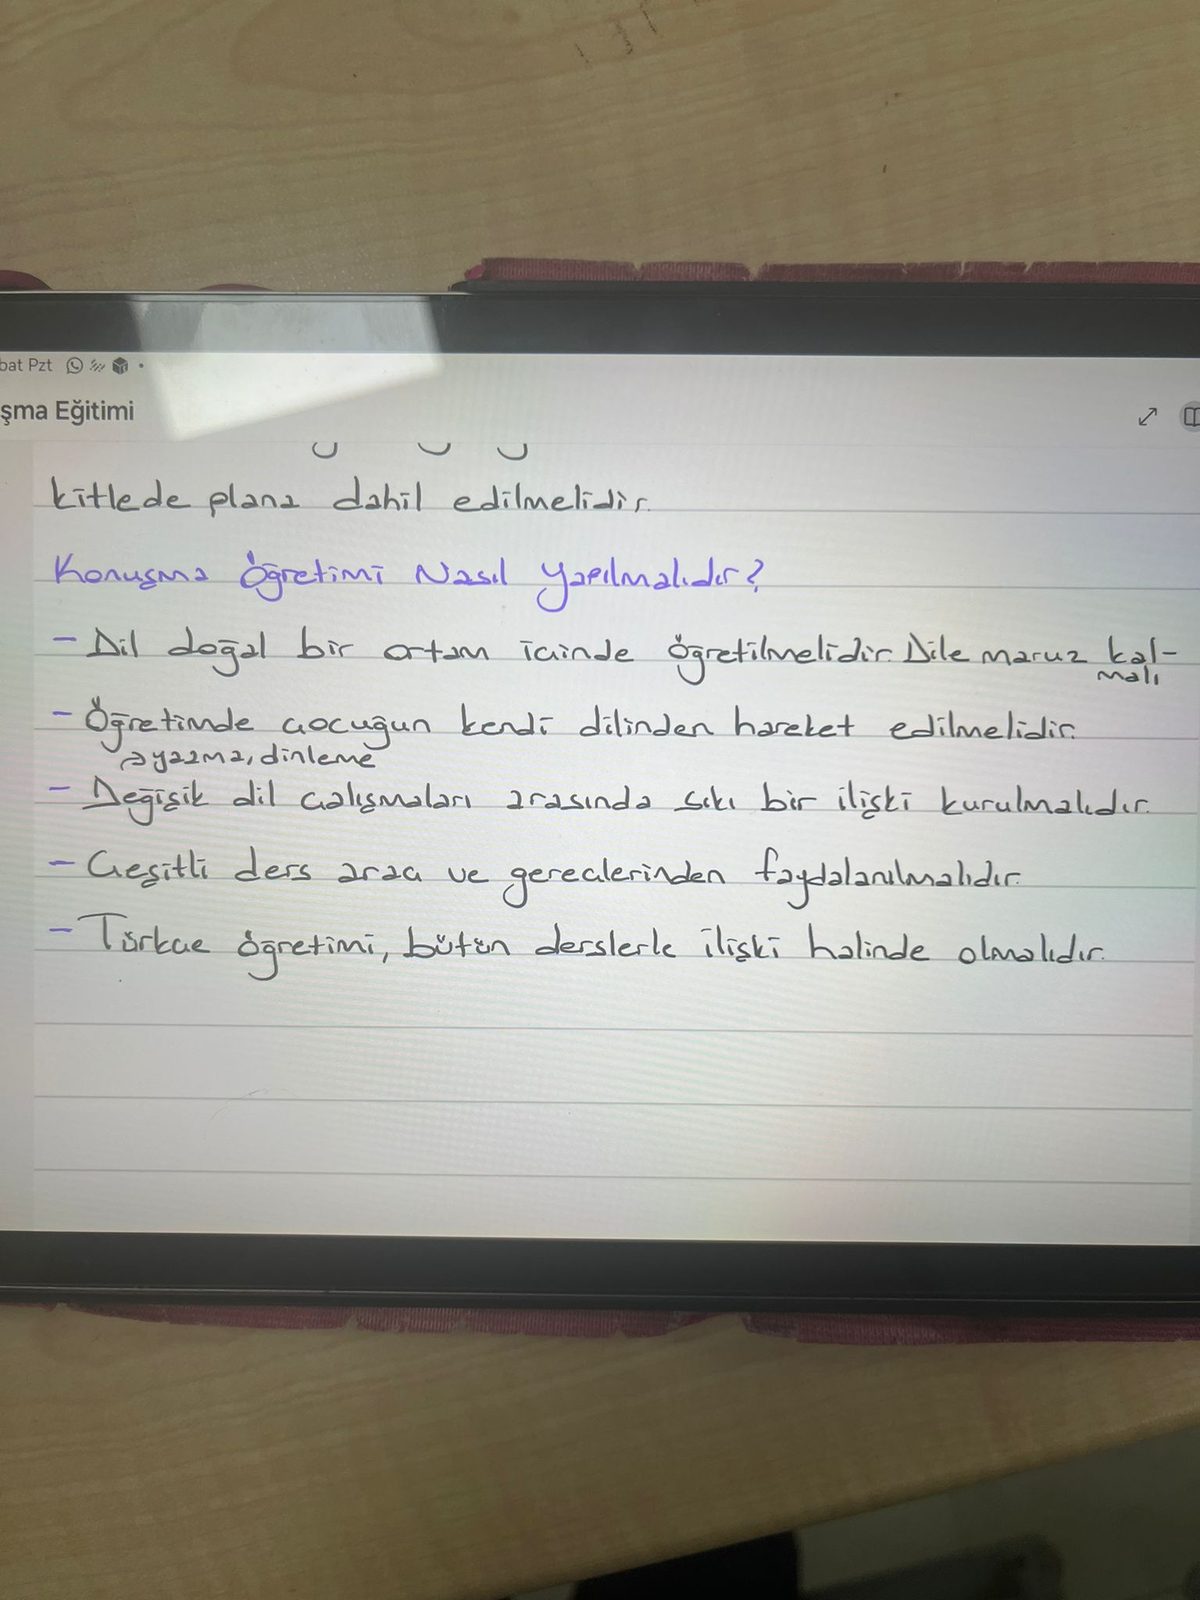 bat Pzt
şma Eğitimi
kitlede plana dahil edilmelidir.
Konuşma Öğretimi Nasıl Yapılmalıdır?
- Dil doğal bir ortam içinde öğretilmelidir. Dile maruz kal-
malı
- Öğretimde çocuğun kendi dilinden hareket edilmelidir.
→ yazma, dinleme
- Değişik dil çalışmaları arasında sıkı bir ilişki kurulmalıdır.
- Çeşitli ders araç ve gereçlerinden faydalanılmalıdır.
- Türkçe öğretimi, bütün derslerle ilişki halinde olmalıdır.